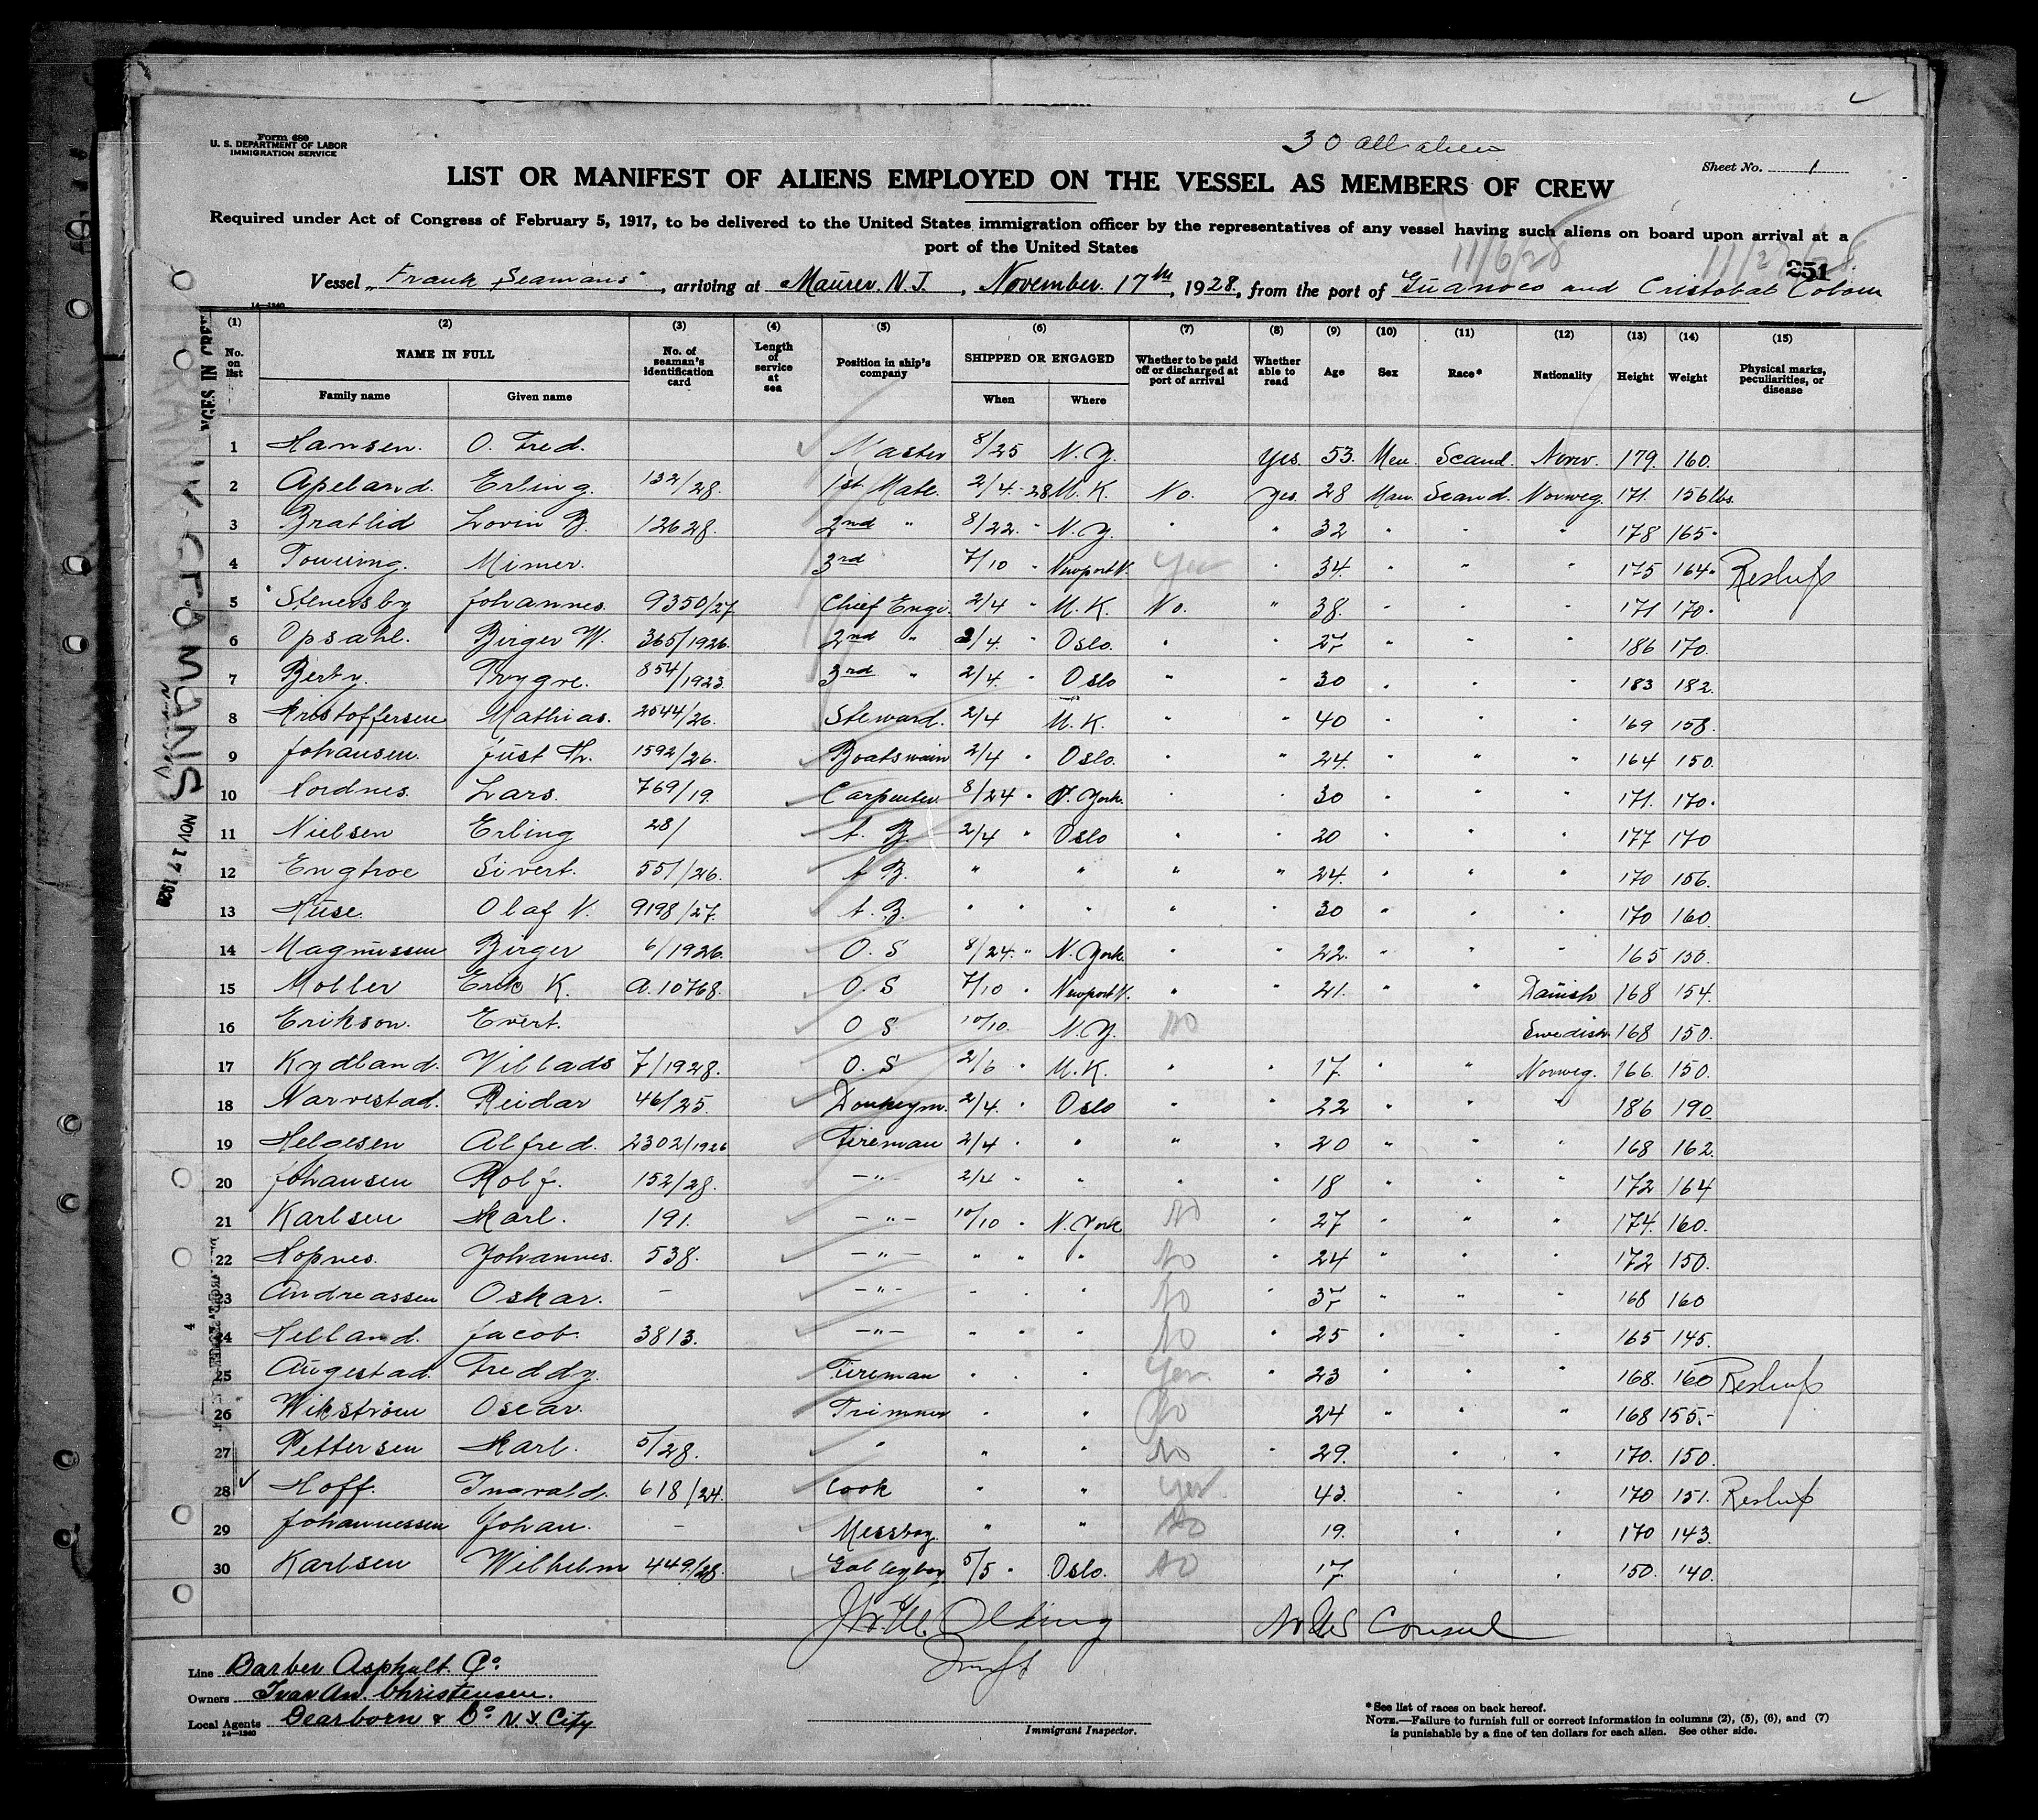 30 all aliens
Form 680
U. S. DEPARTMENT OF LABOR
IMMIGRATION SERVICE
Sheet No. 1
LIST OR MANIFEST OF ALIENS EMPLOYED ON THE VESSEL AS MEMBERS OF CREW
Required under Act of Congress of February 5, 1917, to be delivered to the United States immigration officer by the representatives of any vessel having such aliens on board upon arrival at a
port of the United States
11/6/28
251
Vessel "Frank Seamans", arriving at Maurer. N.J., November. 17th, 1928., from the port of Guanoco and Cristobal Colon
14—1240
(1) (2) (3) (4) (5) (6) (7) (8) (9) (10) (11) (12) (13) (14) (15)
No. on list NAME IN FULL Family name Given name No. of seaman's identification card Length of service at sea Position in ship's company SHIPPED OR ENGAGED When Where Whether to be paid off or discharged at port of arrival Whether able to read Age Sex Race* Nationality Height Weight Physical marks, peculiarities, or disease
1 Hansen. O. Fred. Master 8/25 N.Y. Yes. 53. Men. Scand. Norw. 179. 160.
2 Apeland. Erling. 132/28. 1st Mate. 2/4-28 M.K. No. Yes 28 Man. Scand. Norweg. 171. 156 lbs.
3 Bratlid Lovin B. 12628. 2nd " 8/22. " N.Y. " " 32 " " " 178 165 "
4 Mimer. 3rd 7/10 " Newport N. Yes " 34. " " " 175 164 " Reship
5 Stenersby Johannes. 9350/27. Chief Engi. 2/4 " M.K. No. " 38. " " " 171 170.
6 Opsahl. Birger W. 365/1926. 2nd " 2/4. " Oslo. " " 27 " " " 186 170.
7 Berby. Trygve. 854/1923. 3rd " 2/4. " Oslo " " 30 " " " 183 182.
8 Kristoffersen Mathias. 2544/26. Steward. 2/4 M.K. " " 40 " " " 169 158.
9 Johansen. Just Th. 1592/26. Boatswain 2/4 " Oslo. " " 24. " " " 164 150.
10 Nordnes. Lars. 769/19. Carpenter. 8/24 " N. York. " " 30 " " " 171. 170.
11 Nielsen Erling 28/ A. B. 2/4 " Oslo " " 20 " " " 177 170
12 Engtroe Sivert. 551/26. A B. " " " " 24. " " " 170 156.
13 Huse. Olaf N. 9198/27. A. B. " " " " " 30 " " " 170 160.
14 Magnussen Birger 6/1926. O. S 8/24. " N. York. " " 22. " " " 165 150.
15 Moller Erik K. A. 10768. O. S 7/10 " Newport N. " " 21. " " Danish 168 154.
16 Erikson. Evert. O S 10/10. N.Y. No Swedish 168 150.
17 Kydland. Villads 7/1928. O. S 2/6 " M.K. " " 17. " " Norweg. 166. 150.
18 Narvestad. Reidar 46/25. Donkeym. 2/4. " Oslo " " 22 " " " 186 190.
19 Helgesen Alfred. 2302/1926 Fireman 2/4 " " " " 20 " " " 168 162.
20 Johansen Rolf. 152/28. —"— 2/4 " " " " 18 " " " 172 164
21 Karlsen Karl. 191. —"— 10/10 " N. York No " 27 " " " 174. 160.
22 Hopnes. Johannes. 538. —"— " " " No " 24 " " " 172 150.
23 Andreassen Oskar. — —"— " " " No " 37 " " " 168 160
24 Helland. Jacob. 3813. —"— " " " No " 25 " " " 165 145.
25 Augestad. Freddy. Fireman " " Yes. " 23 " " " 168. 160 Reship
26 Wikstrøm Oscar. Trimmer " " No 24 " " " 168 155.-
27 Pettersen Karl. 5/28. " " " No " 29. " " 170. 150.
28 Hoff. Ingvald. 618/24. Cook " " Yes 43. " " 170 151. Reship
29 Johannessen Johan. — Messboy. " " No 19. " " 170 143.
30 Karlsen Wilhelm 449/28. Galleyboy. 5/5 " Oslo. No 17 " " 150. 140.
No US Consul
Line Barber Asphalt. Co.
Owners Ivar An. Christensen.
Local Agents Dearborn & Co. N.Y. City
14—1240
Immigrant Inspector.
*See list of races on back hereof.
NOTE.—Failure to furnish full or correct information in columns (2), (5), (6), and (7)
is punishable by a fine of ten dollars for each alien. See other side.
NOV 17 1928